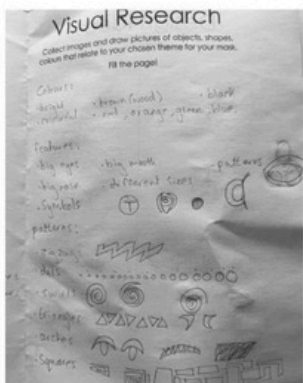 Visual Research
Collect images and draw pictures of objects, shapes,
colours that relate to your chosen theme for your mask.
Fill the page!
Colours:
· bright · brown (wood) · black
· colourful · red, orange, green, blue.
features:
· big eyes · big mouth patterns
· big nose · different sizes
· Symbols
patterns:
· zigzag
· dots
· swirls
· triangles
· arches
· Squares